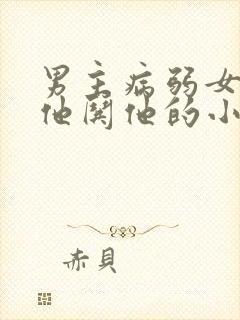 男主病弱女
他関他的小
赤貝